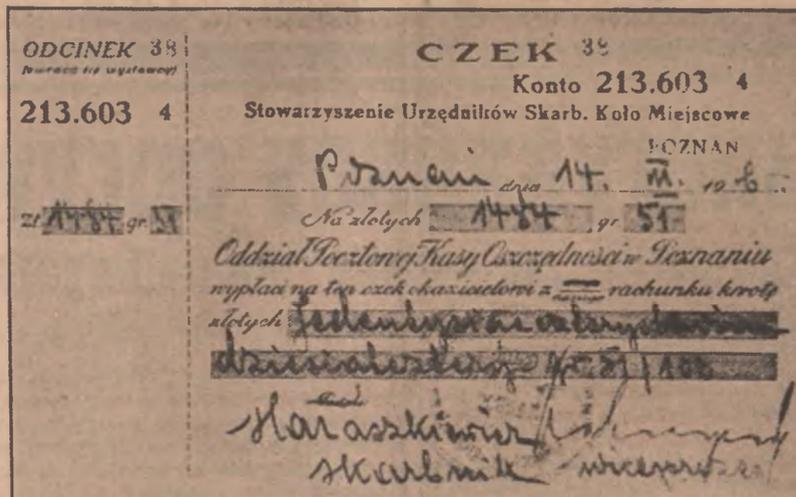 ODCINEK 38
213.603 4
Zł 1484 gr. 51
CZEK 38
Konto 213.603 4
Stowarzyszenie Urzędników Skarb. Koło Miejscowe
POZNAŃ
Poznań dnia 14. III. 19
Na złotych 1484 gr 51
Oddział Pocztowej Kasy Oszczędności w Poznaniu
wypłaci na ten czek okazicielowi z rachunku kwotę
złotych jedentysiąc
51/100
Haraszkiewicz
skarbnik wiceprezes